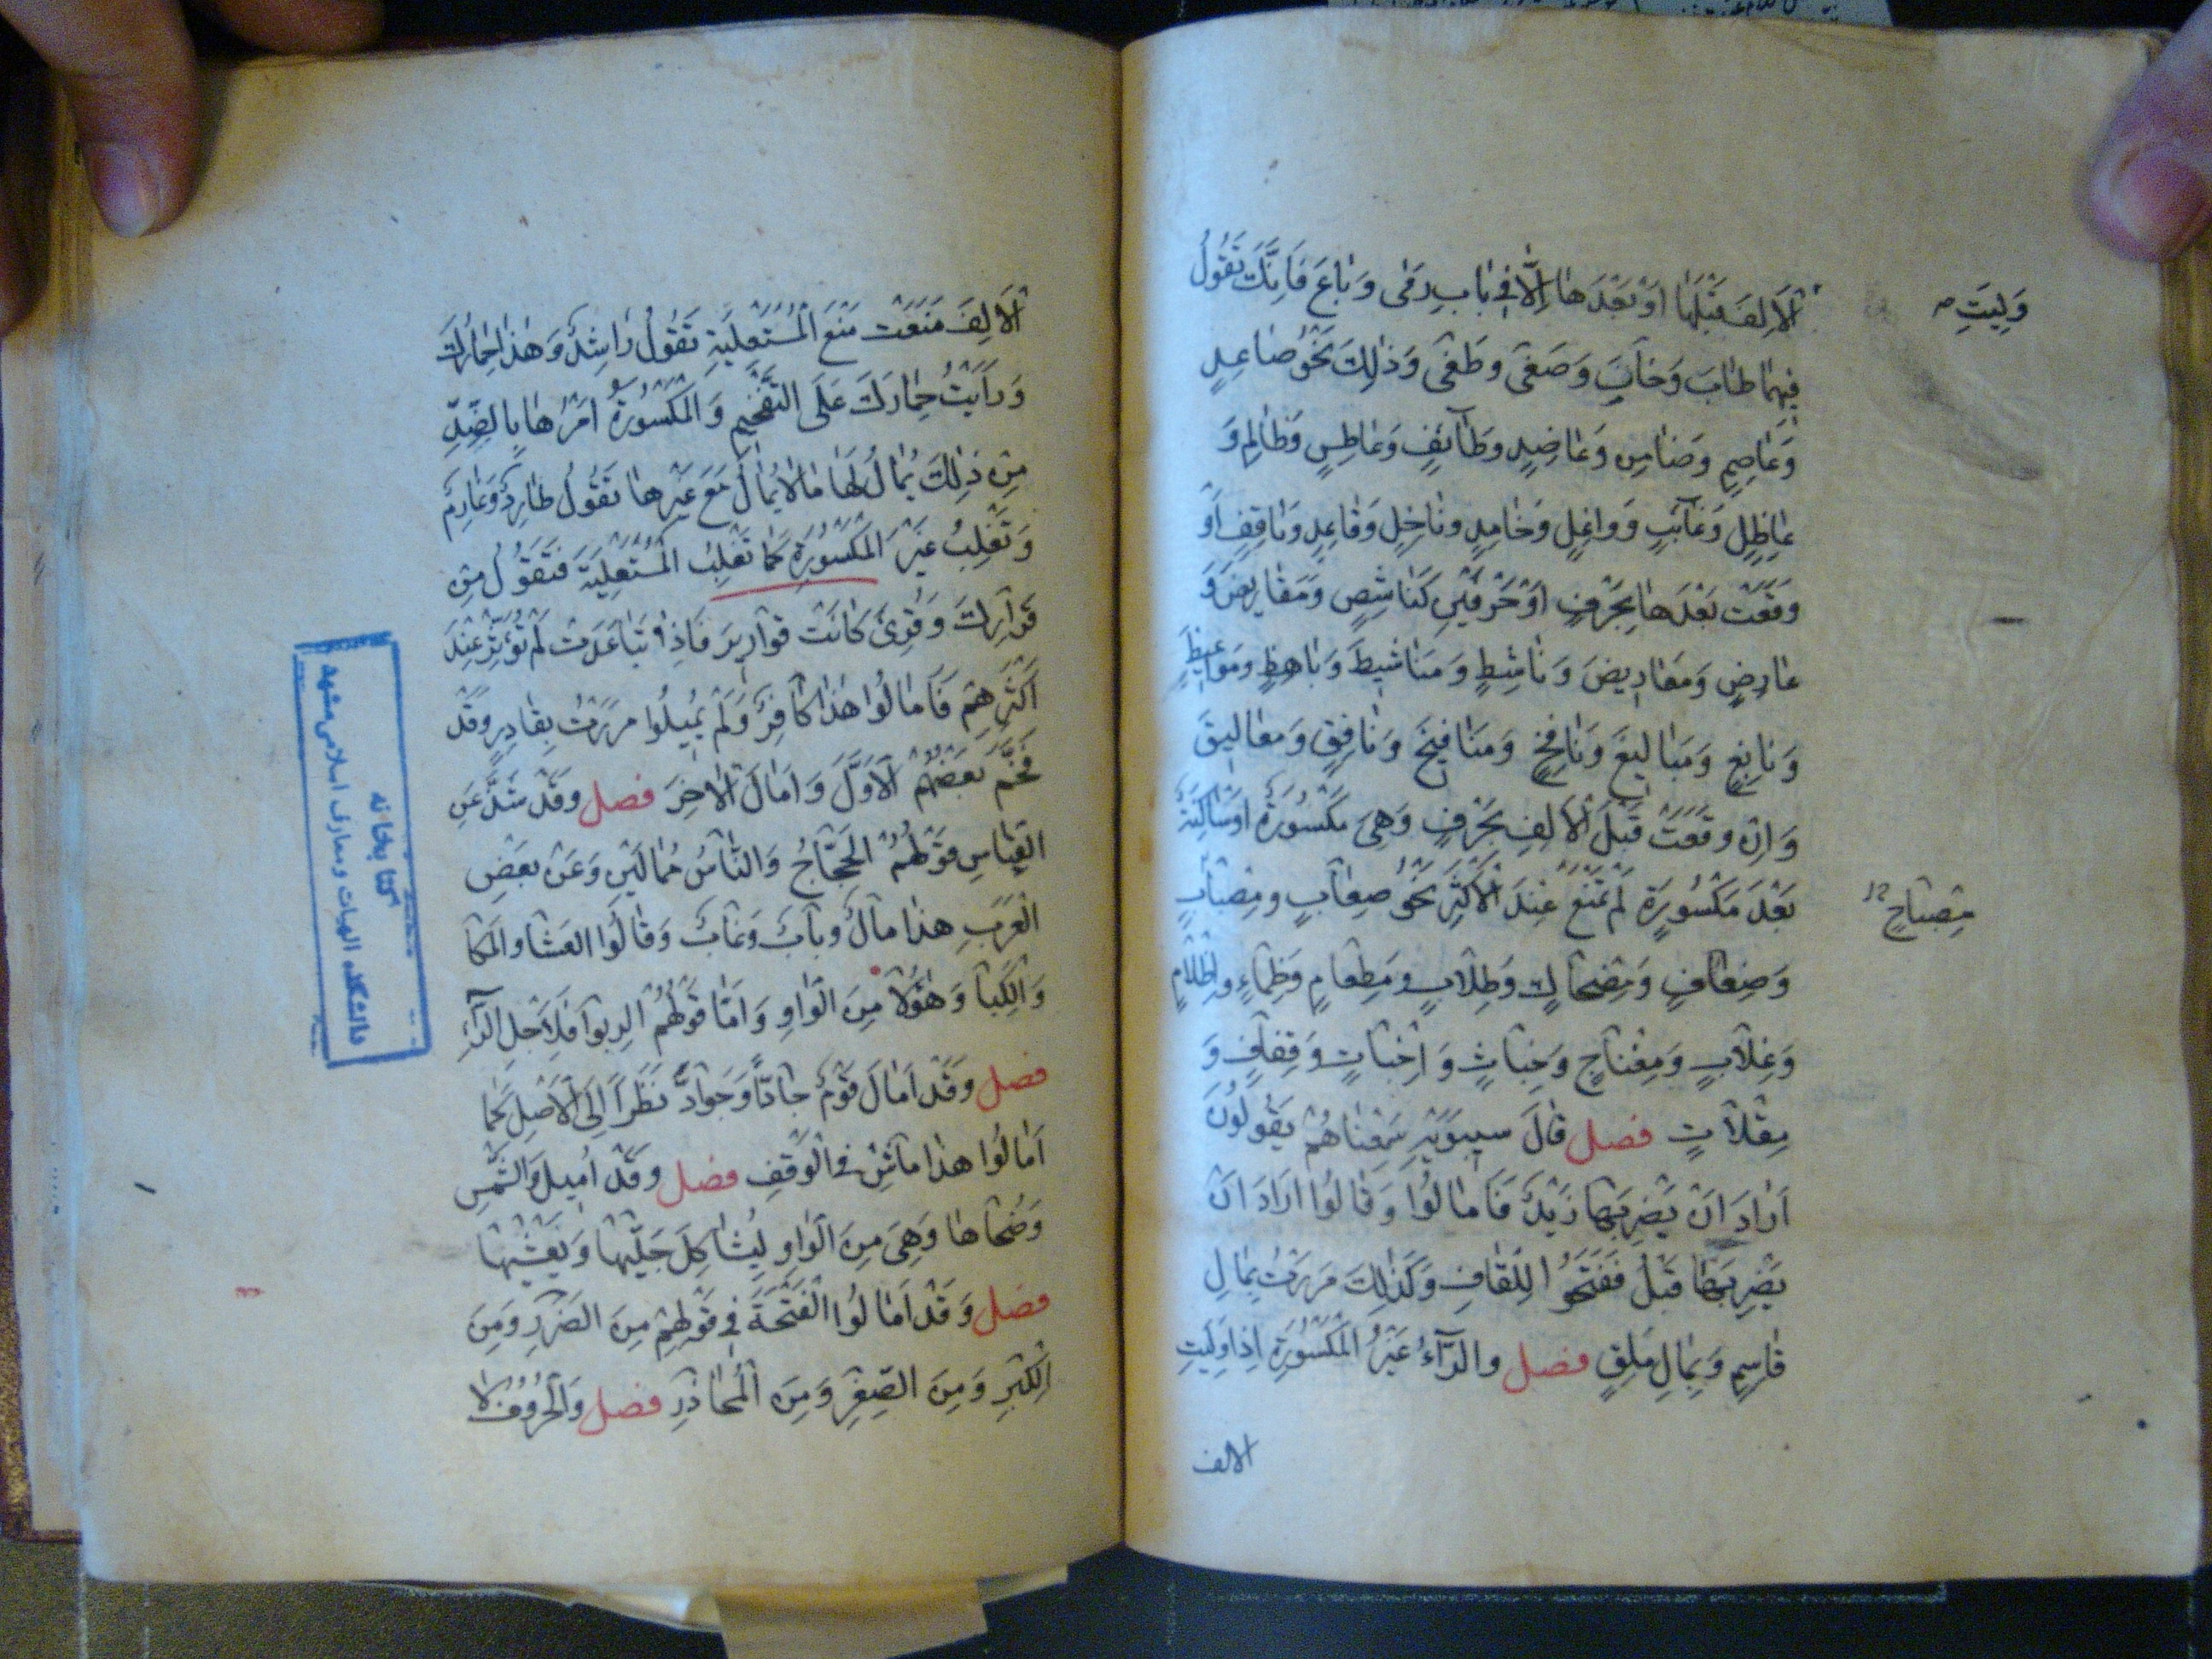 وَلِيَتِ
اَلاَلِفَ قَبْلَهَا اَوْ بَعْدَهَا اِلَّا فِي بَابِ رَمَى وَبَاعَ فَاِنَّكَ تَقُولُ
فِيهِمَا طَابَ وَخَابَ وَصَغَى وَطَغَى وَذٰلِكَ نَحْوُ صَاعِدٍ
وَعَاصِمٍ وَضَامِنٍ وَعَاضِدٍ وَطَآئفٍ وَعَاطِسٍ وَظَالِمٍ وَ
عَاظِلٍ وَغَآئبٍ وَوَاغِلٍ وَخَامِدٍ وَنَاخِلٍ وَقَاعِدٍ وَنَاقِفٍ اَوْ
وَقَعَتْ بَعْدَهَا بِحَرْفٍ اَوْ حَرْفَيْنِ كَنَاشِصٍ وَمَفَارِيصَ وَ
عَارِضٍ وَمَعَارِيضَ وَنَاشِطٍ وَمَنَاشِيطَ وَبَاهِظٍ وَمَوَاعِيظَ
وَنَابِغٍ وَمَبَالِيغَ وَنَافِخٍ وَمَنَافِيخَ وَنَافِقٍ وَمَعَالِيقَ
وَاِنْ وَقَعَتْ قَبْلَ الْاَلِفِ بِحَرْفٍ وَهِيَ مَكْسُورَةٌ اَوْ سَاكِنَةٌ
بَعْدَ مَكْسُورَةٍ لَمْ تَمْنَعْ عِنْدَ الْاَكْثَرِ نَحْوُ صِعَابٍ وَمِصْبَاحٍ
مِصْبَاحٍ
وَضِعَافٍ وَمِضْحَاكٍ وَطِلَابٍ وَمِطْعَامٍ وَظِمَاءٍ وَاِظْلَامٍ
وَغِلَابٍ وَمِغْنَاجٍ وَخِبَاثٍ وَاِخْبَاتٍ وَقِفَافٍ وَ
مِقْلَاتٍ فصل قَالَ سِيبَوَيْهِ سَمِعْنَاهُمْ يَقُولُونَ
اَرَادَ اَنْ يَضْرِبَهَا زَيْدٌ فَاَمَالُوْا وَقَالُوا اَرَادَ اَنْ
يَضْرِبَهَا قَبْلُ فَفَتَحُوا لِلْقَافِ وَكَذٰلِكَ مَرَرْتُ بِمَالِ
قَاسِمٍ وَبِمَالِ مَلِقٍ فصل وَالرَّآءُ غَيْرُ الْمَكْسُورَةِ اِذَا وَلِيَتِ
الالف
اَلاَلِفَ مَنَعَتْ مَنْعَ الْمُسْتَعْلِيَةِ تَقُولُ رَاشِدٌ وَهٰذَا حِمَارُكَ
وَرَاَيْتُ حِمَارَكَ عَلَى التَّفْخِيمِ وَالْمَكْسُورَةُ اَمْرُهَا بِالضِّدِّ
مِنْ ذٰلِكَ يُمَالُ لَهَا مَا لَا يُمَالُ مَعَ غَيْرِهَا تَقُولُ طَارِدٌ وَعَارِمٌ
وَتَغْلِبُ غَيْرَ الْمَكْسُورَةِ كَمَا تَغْلِبُ الْمُسْتَعْلِيَةَ فَتَقُولُ مِنْ
قَرَارِكَ وَقُرِئَ كَانَتْ قَوَارِيرَ فَاِذَا تَبَاعَدَتْ لَمْ تُؤَثِّرْ عِنْدَ
اَكْثَرِهِمْ فَاَمَالُوا هٰذَا كَافِرٌ وَلَمْ يُمِيلُوا مَرَرْتُ بِقَادِرٍ وَقَدْ
فَخَّمَ بَعْضُهُمُ الْاَوَّلَ وَاَمَالَ الْاٰخِرَ فصل وَقَدْ شَذَّ عَنِ
الْقِيَاسِ قَوْلُهُمُ الْحَجَّاجُ وَالنَّاسُ مُمَالَيْنِ وَعَنْ بَعْضِ
الْعَرَبِ هٰذَا مَالٌ وَبَابٌ وَغَابٌ وَقَالُوا الْعَشَا وَالْمَكَا
وَالْكِبَا وَهٰؤُلَا مِنَ الْوَاوِ وَاَمَّا قَوْلُهُمُ الرِّبوا فَلِاَجْلِ الرَّاءِ
فصل وَقَدْ اَمَالَ قَوْمٌ جَادًّا وَجَوَادَّ نَظَرًا اِلَى الْاَصْلِ كَمَا
اَمَالُوا هٰذَا مَاشْ فِي الْوَقْفِ فصل وَقَدْ اُمِيلَ وَالشَّمْسِ
وَضُحَاهَا وَهِيَ مِنَ الْوَاوِ لِيُشَاكِلَ جَلّٰيهَا وَيَغْشٰيهَا
فصل وَقَدْ اَمَالُوا الْفَتْحَةَ فِي قَوْلِهِمْ مِنَ الضَّرَرِ وَمِنَ
الْكِبَرِ وَمِنَ الصِّغَرِ وَمِنَ الْمُحَاذَرِ فصل وَالْحُرُوفُ لَا
كتابخانه
دانشكده الهيات ومعارف اسلامى مشهد